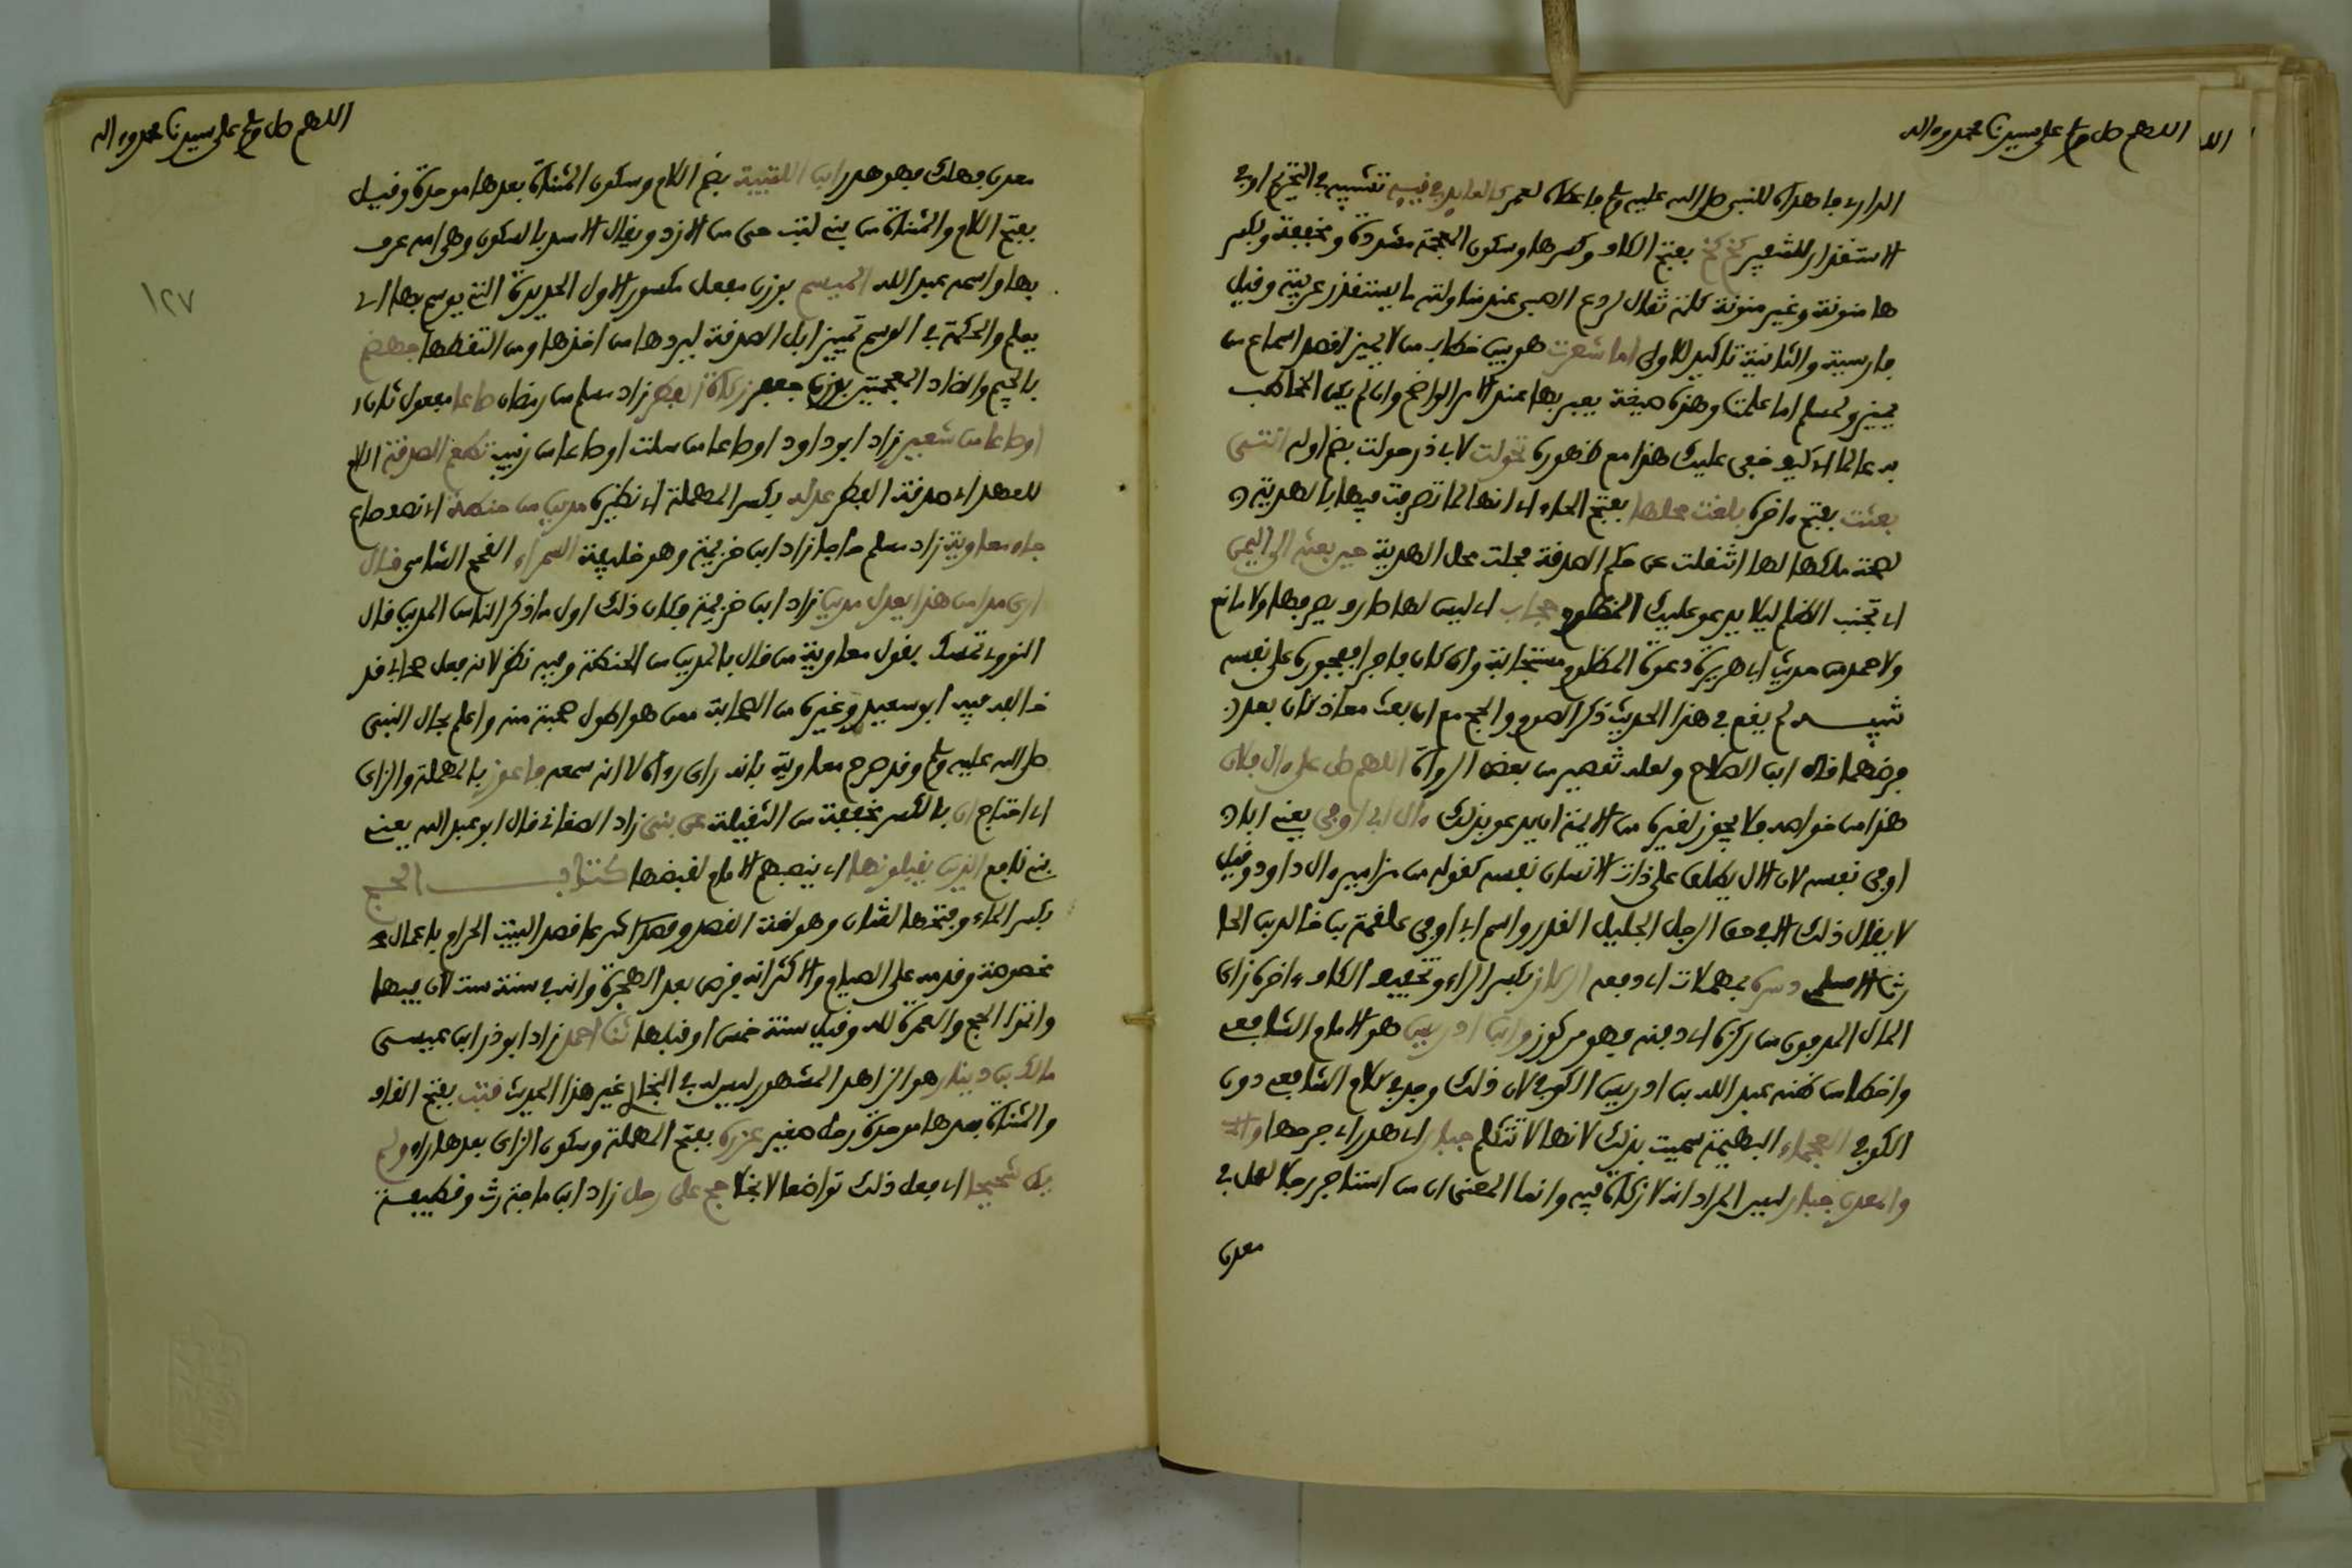 اللهم صل وسلم على سيدنا محمد وءاله
الدارى فاهداه للنبي صلى الله عليه وسلم فاعطاه لعمر كالعايد في قيئه تشبيه في التحريم او في
الاستقذار للشعير كخ كخ بفتح الكاف وكسرها وسكون المعجمة مشددة ومخففة وبكسر
ها منونة وغير منونة كلمة تقال لردع الصبي عند مناولته ما يستقذر عربية وقيل
فارسية والثانية تاكيد للاولى اما شعرت هو بين خطاب من لا يميز لقصد اسماع من
يميز ولمسلم اما علمت وهذه صيغة يعبر بها عند الامر الواضح وان لم يكن المخاطب
به عالما اى كيف خفي عليك هذا مع ظهوره تحولت لابي ذر حولت بضم اوله انتهى
بعثت بفتح ءاخره بلغت محلها بفتح الحاء اى انها لما تصرفت فيها بالهدية
لصحة ملكها لها انتقلت عن حكم الصدقة فحلت محل الهدية حين بعثه الى اليمن
اى تجنب الظلم ليلا يدعو عليك المظلوم حجاب اى ليس لها صارف يصرفها ولا مانع
ولاحمد من حديث ابي هريرة دعوة المظلوم مستجابة وان كان فاجرا ففجوره على نفسه
تنبيه لم يقع في هذا الحديث ذكر الصوم والحج مع ان بعث معاذ كان بعد
فرضهما قال ابن الصلاح ولعله تقصير من بعض الرواة اللهم صل على ءال فلان
هذا من خواصه فلا يجوز لغيره من الايمة ان يدعو بذلك ءال ابي اوفى يعني ابا
اوفى نفسه لان الال يطلق على ذات الانسان نفسه كقوله من مزامير ءال داود وقيل
لا يقال ذلك الا في حق الرجل الجليل القدر واسم ابي اوفى علقمة بن خالد بن الحا
رث الاسلمي دسره بمهملات اى دفعه الركاز بكسر الراء وتخفيف الكاف ءاخره زاى
المال المدفون من ركزه اى دفنه فهو مركوز وابن ادريس هو الامام الشافعي
واخطا من ظنه عبد الله بن ادريس الكوفي لان ذلك وجد في كلام الشافعي دون
الكوفي العجماء البهيمة سميت بذلك لانها لا تتكلم جبار اى هدر اى جرحها
والمعدن جبار ليس المراد انه لا زكاة فيه وانما المعنى ان من استاجر رجلا لعمل في
معدن
اللهم صل وسلم على سيدنا محمد وءاله
١٢٧
معدن فهلك فهو هدر ابن اللتبية بضم اللام وسكون المثناة بعدها موحدة وقيل
بفتح اللام والمثناة من بني لتب حي من الازد ويقال الاسد بالسكون وهي امه عرف
بها واسمه عبد الله الميسم بوزن مفعل مكسور الاول الحديدة التي يوسم بها اى
يعلم والحكمة في الوسم تمييز ابل الصدقة ليردها من اخذها ومن التقطها جهضم
بالجيم والضاد المعجمتين بوزن جعفر زكاة الفطر زاد مسلم من رمضان صاعا مفعول ثان
اوصاعا من شعير زاد ابو داود اوصاعا من سلت اوصاعا من زبيب تطعم الصدقة اللام
للعهد اى صدقة الفطر عدله بكسر المهملة اى نظيره مدين من حنطة اى نصف صاع
جاء معاوية زاد مسلم حاجا زاد ابن خزيمة وهو خليفة السمراء القمح الشامي قال
ارى مدا من هذا يعدل مدين زاد ابن خزيمة فكان ذلك اول ما ذكر الناس المدين قال
النووى تمسك بقول معاوية من قال بالمدين من الحنطة وفيه نظر لانه فعل صحابي قد
خالفه فيه ابو سعيد وغيره من الصحابة ممن هو اطول صحبة منه واعلم بحال النبي
صلى الله عليه وسلم وقد صرح معاوية بانه راى رءاه لا انه سمعه فاعوز بالمهملة والزاى
اى احتاج ان بالكسر مخففة من الثقيلة عن بني زاد الصغاني قال ابو عبد الله يعني
بني نافع الذين يقبلونها اى ينصبهم الامام لقبضها كتاب الحج
بكسر الحاء وفتحها لغتان وهو لغة القصد وشرعا قصد البيت الحرام باعمال
مخصوصة وقدمه على الصيام والاكثر انه فرض بعد الهجرة وانه في سنة ست لان فيها
واتموا الحج والعمرة لله وقيل سنة خمس او قبلها ثنا احمد زاد ابو ذر ابن عيسى
مالك بن دينار هو الزاهد المشهور ليس له في البخارى غير هذا الحديث قتب بفتح القاف
والمثناة بعدها موحدة رحل صغير عزره بفتح المهملة وسكون الزاى بعدها راء ولم
يكن شحيحا اى فعل ذلك تواضعا لا بخلا حج على رحل زاد ابن ماجة رث وقطيفة